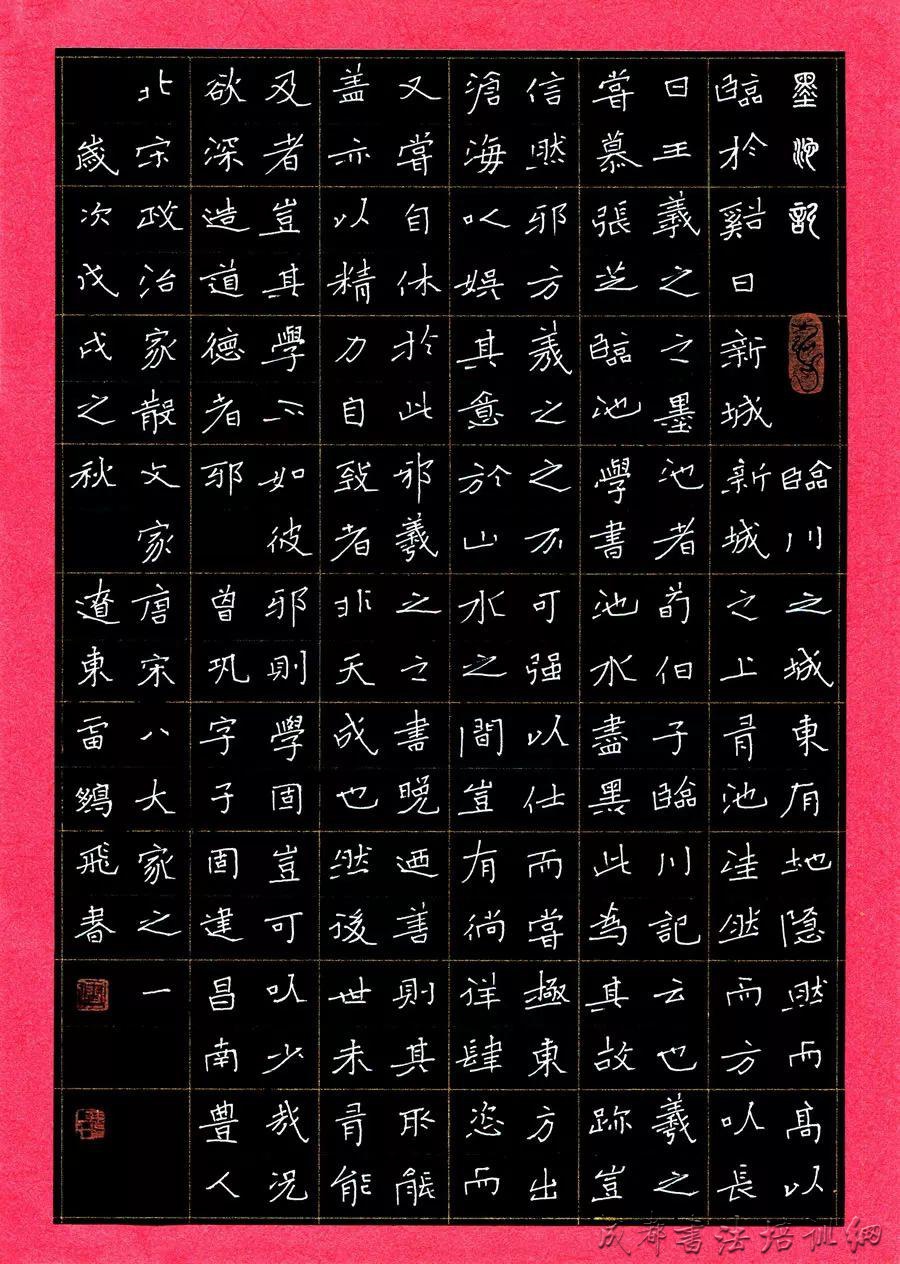 墨池記 臨川之城東有地隱然而高以
臨於谿曰新城新城之上有池洼然而方以長
曰王羲之之墨池者荀伯子臨川記云也羲之
嘗慕張芝臨池學書池水盡黑此為其故跡豈
信然邪方羲之之不可强以仕而嘗極東方出
滄海以娛其意於山水之間豈有徜徉肆恣而
又嘗自休於此邪羲之之書晚迺善則其所能
盖亦以精力自致者非天成也然後世未有能
及者豈其學不如彼邪則學固豈可以少哉况
欲深造道德者邪 曾巩字子固建昌南豊人
北宋政治家散文家唐宋八大家之一
歲次戊戌之秋 遼東雷飛書
成都書法培训網